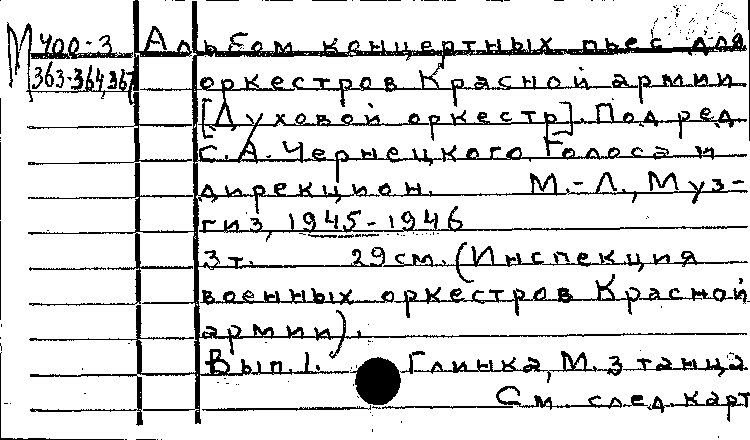 М 400-3 Альбом концертных пьес для
363-364,367 оркестров Красной армии
[Духовой оркестр]. Под ред.
С.А.Чернецкого. Голоса и
дирекцион. М.-Л., Муз-
гиз, 1945-1946
3 т. 29 см. (Инспекция
военных оркестров Красной
армии).
Вып.1. Глинка, М. 3 танца
См. след. карт